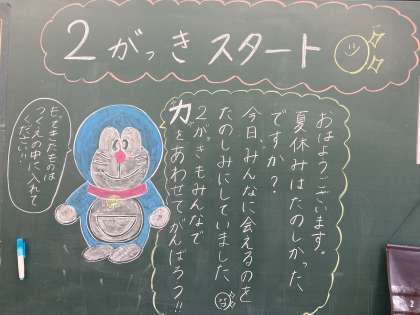 2がっきスタート
おはようございます。
夏休みはたのしかった
ですか?
今日、みんなに会えるのを
たのしみにしていました。
2がっきもみんなで
力をあわせてがんばろう!!
もってきたものは
つくえの中に入れて
ください!!